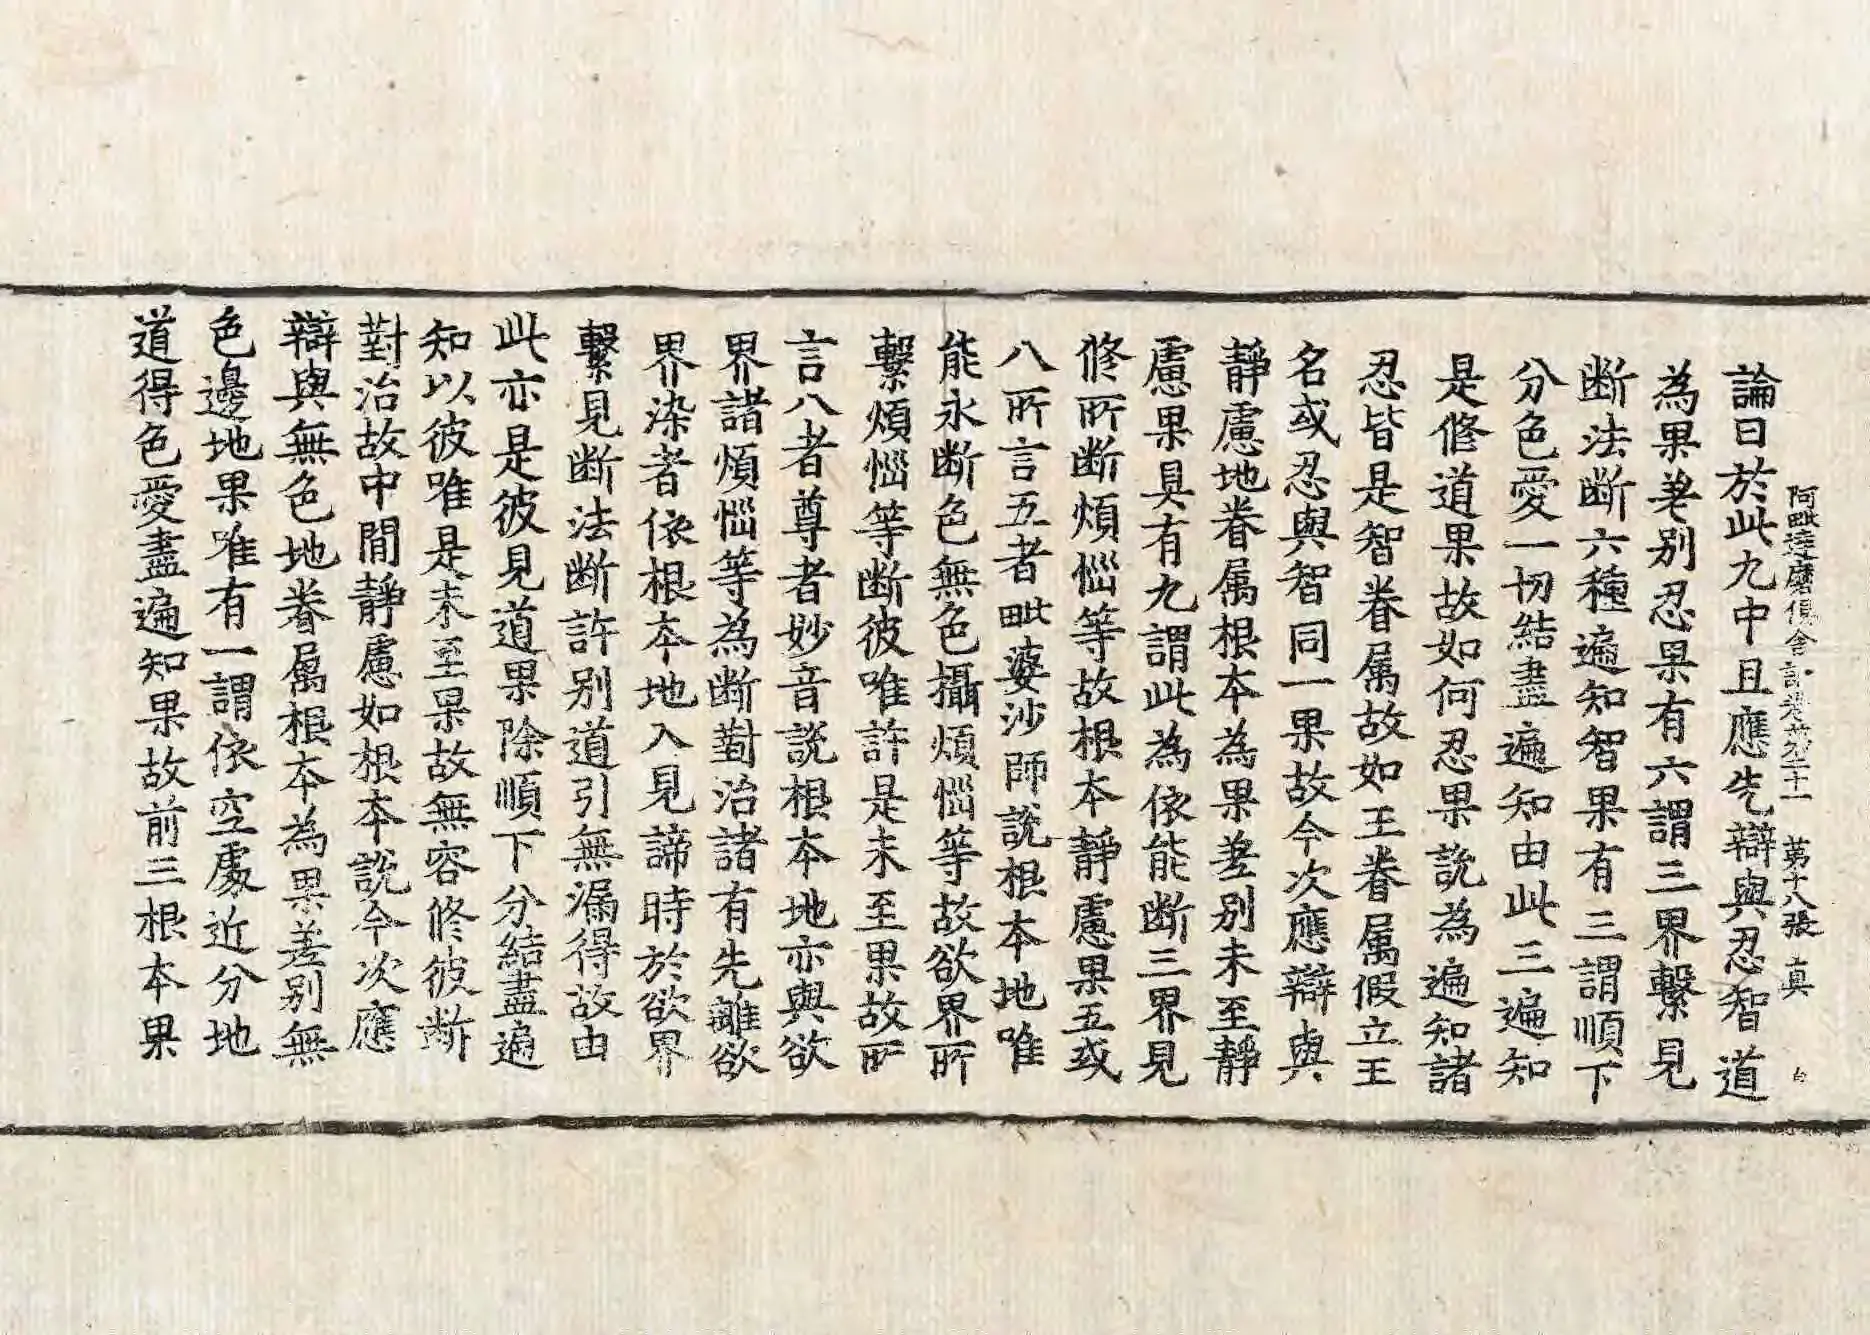 阿毗達磨俱舍論卷第二十一 第十八張 真
論曰於此九中且應先辯與忍智道
為果差別忍果有六謂三界繫見
断法断六種遍知智果有三謂順下
分色愛一切結盡遍知由此三遍知
是修道果故如何忍果說為遍知諸
忍皆是智眷属故如王眷属假立王
名或忍與智同一果故今次應辯與
靜慮地眷属根本為果差別未至靜
慮果具有九謂此為依能断三界見
修所断煩惱等故根本靜慮果五或
八所言五者毗婆沙師說根本地唯
能永断色無色攝煩惱等故欲界所
繫煩惱等断彼唯許是未至果故所
言八者尊者妙音說根本地亦與欲
界諸煩惱等為断對治諸有先離欲
界染者依根本地入見諦時於欲界
繫見断法断許別道引無漏得故由
此亦是彼見道果除順下分結盡遍
知以彼唯是未至果故無容修彼断
對治故中間靜慮如根本說今次應
辯與無色地眷属根本為果差別無
色邊地果唯有一謂依空處近分地
道得色愛盡遍知果故前三根本果